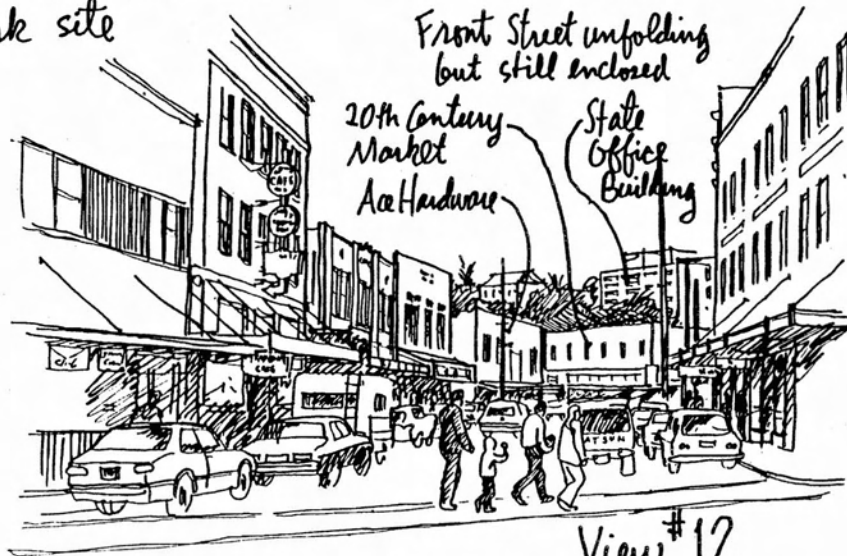 site
Front Street unfolding
but still enclosed
20th Century
Market
State
Office
Building
Ace Hardware
CAFE
CAFE
ATSUN
View #12